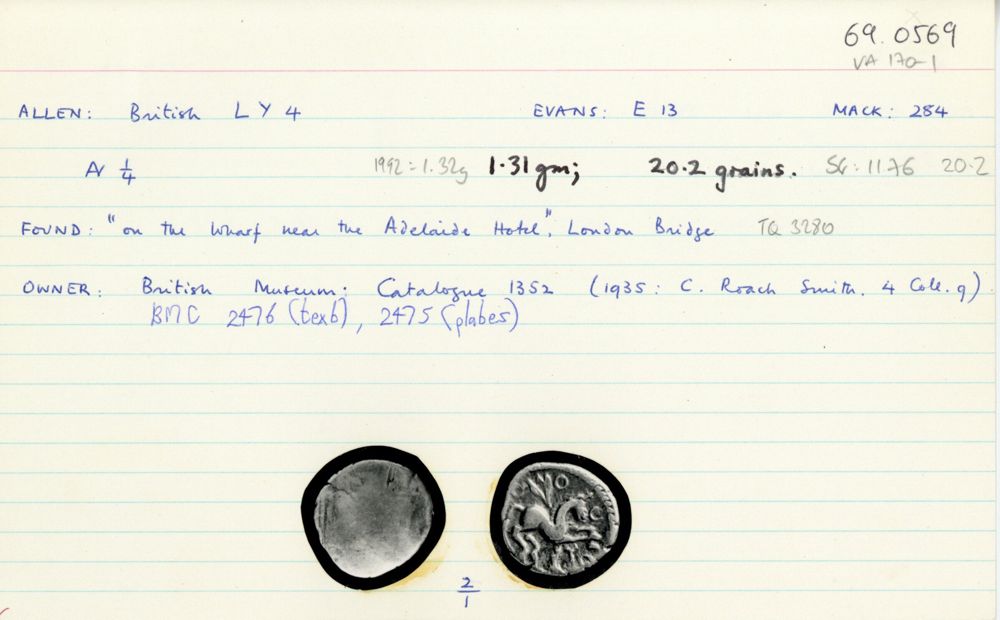 69.0569
VA 170-1
ALLEN: British L Y 4 EVANS: E 13 MACK: 284
AV 1/4 1992 = 1.32g 1.31 gm; 20.2 grains. SG: 11.76 20.2
FOUND: "on the wharf near the Adelaide Hotel", London Bridge TQ 3280
OWNER: British Museum: Catalogue 1352 (1935: C. Roach Smith. 4 Coll. 9)
BMC 2476 (text), 2475 (plates)
2/1